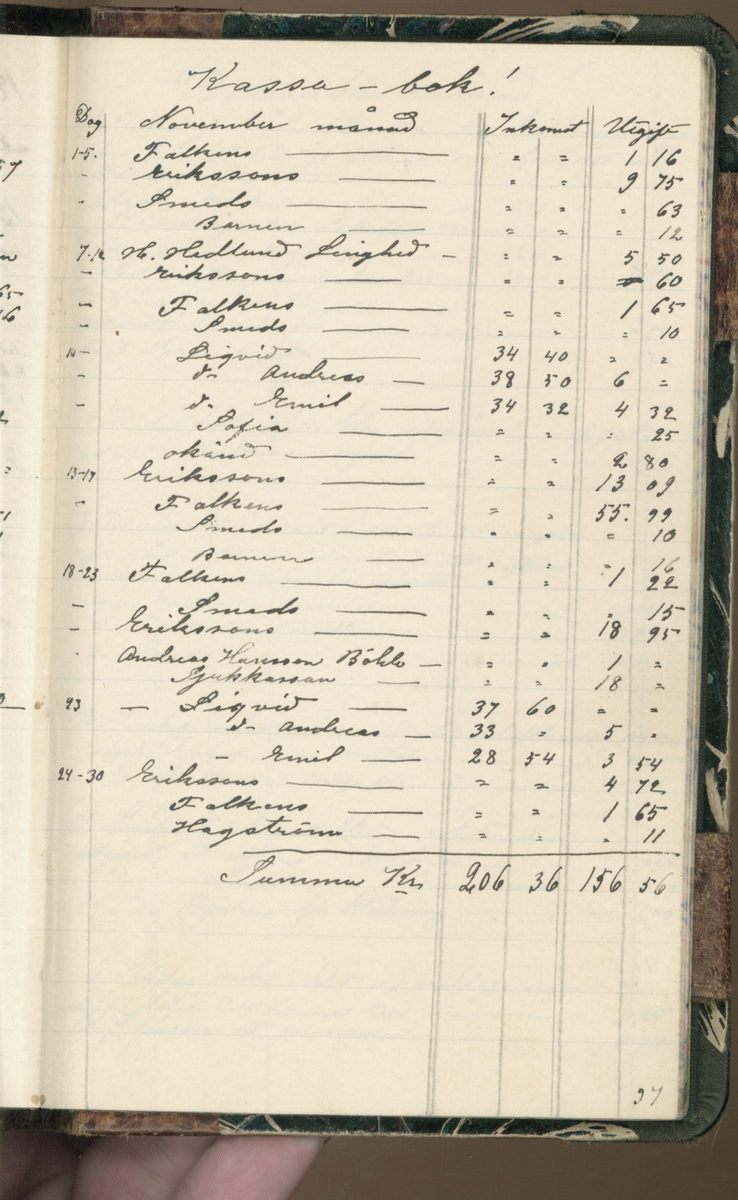 Kassa-bok!
Dag November månad Inkomst Utgift
1-5. Falkens — " " 1 16
- Erikssons — " " 9 75
" Smeds — " " " 63
Barnen — " " " 12
7-12 H. Hedlund Linghed - " " 5 50
- Erikssons — " " " 60
- Falkens — " " 1 65
- Smeds — " " " 10
10- Liqvid — 34 40 " "
- d:o Andreas — 38 50 6 "
- d:o Emil — 34 32 4 32
Sofia — " " " 25
okänd — " " 2 80
13-17 Erikssons — " " 13 09
- Falkens — " " 55. 99
- Smeds — " " " 10
Barnen — " " " 16
18-23 Falkens — " " 1 22
- Smeds — " " " 15
- Erikssons — " " 18 95
" Andreas Hansson Böhle — " " 1 "
Sjukkassan — " " 18 "
23 — Liqvid — 37 60 " "
d:o Andreas — 33 " 5 "
- Emil — 28 54 3 54
24-30 Erikssons — " " 4 72
Falkens — " " 1 65
Hagström — " " " 11
Summa Kr 206 36 156 56
37